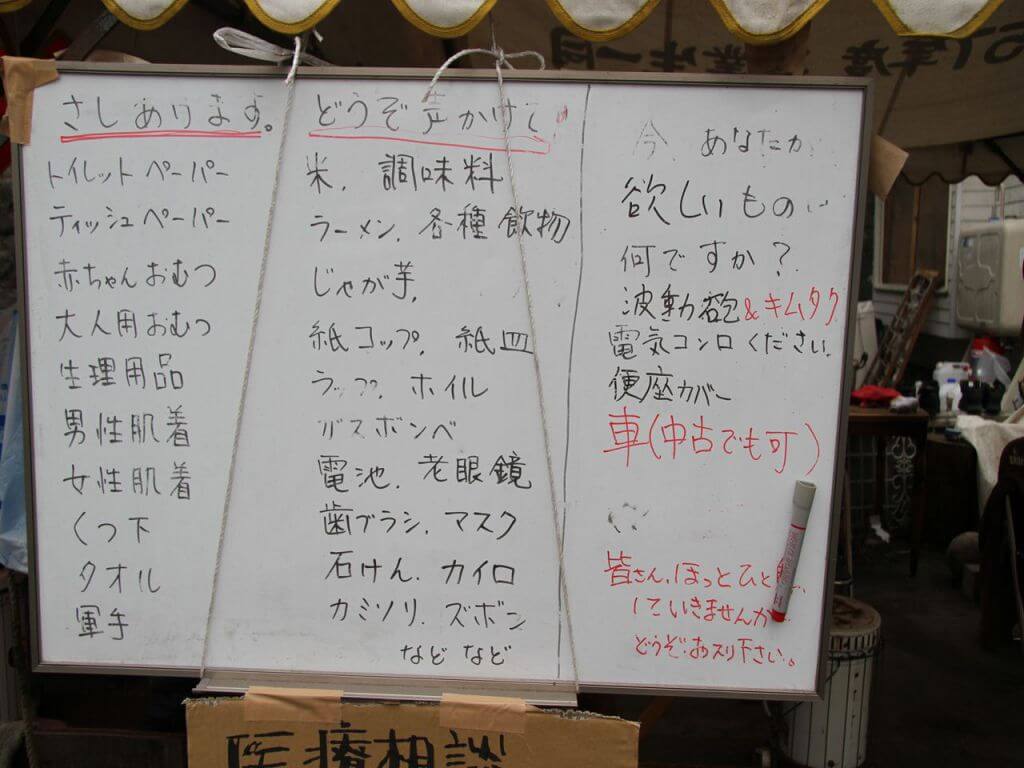 さしあります。
トイレットペーパー
ティッシュペーパー
赤ちゃんおむつ
大人用おむつ
生理用品
男性肌着
女性肌着
くつ下
タオル
軍手
どうぞ声かけて
米、調味料
ラーメン、各種飲物
じゃが芋、
紙コップ、紙皿
ラップ、ホイル
ガスボンベ
電池、老眼鏡
歯ブラシ、マスク
石けん、カイロ
カミソリ、ズボン
などなど
今、あなたが
欲しいもの
何ですか?
波動砲&キムタク
電気コンロください。
便座カバー
車(中古でも可)
皆さん、ほっとひと
していきませんか
どうぞお入り下さい。
医療相談